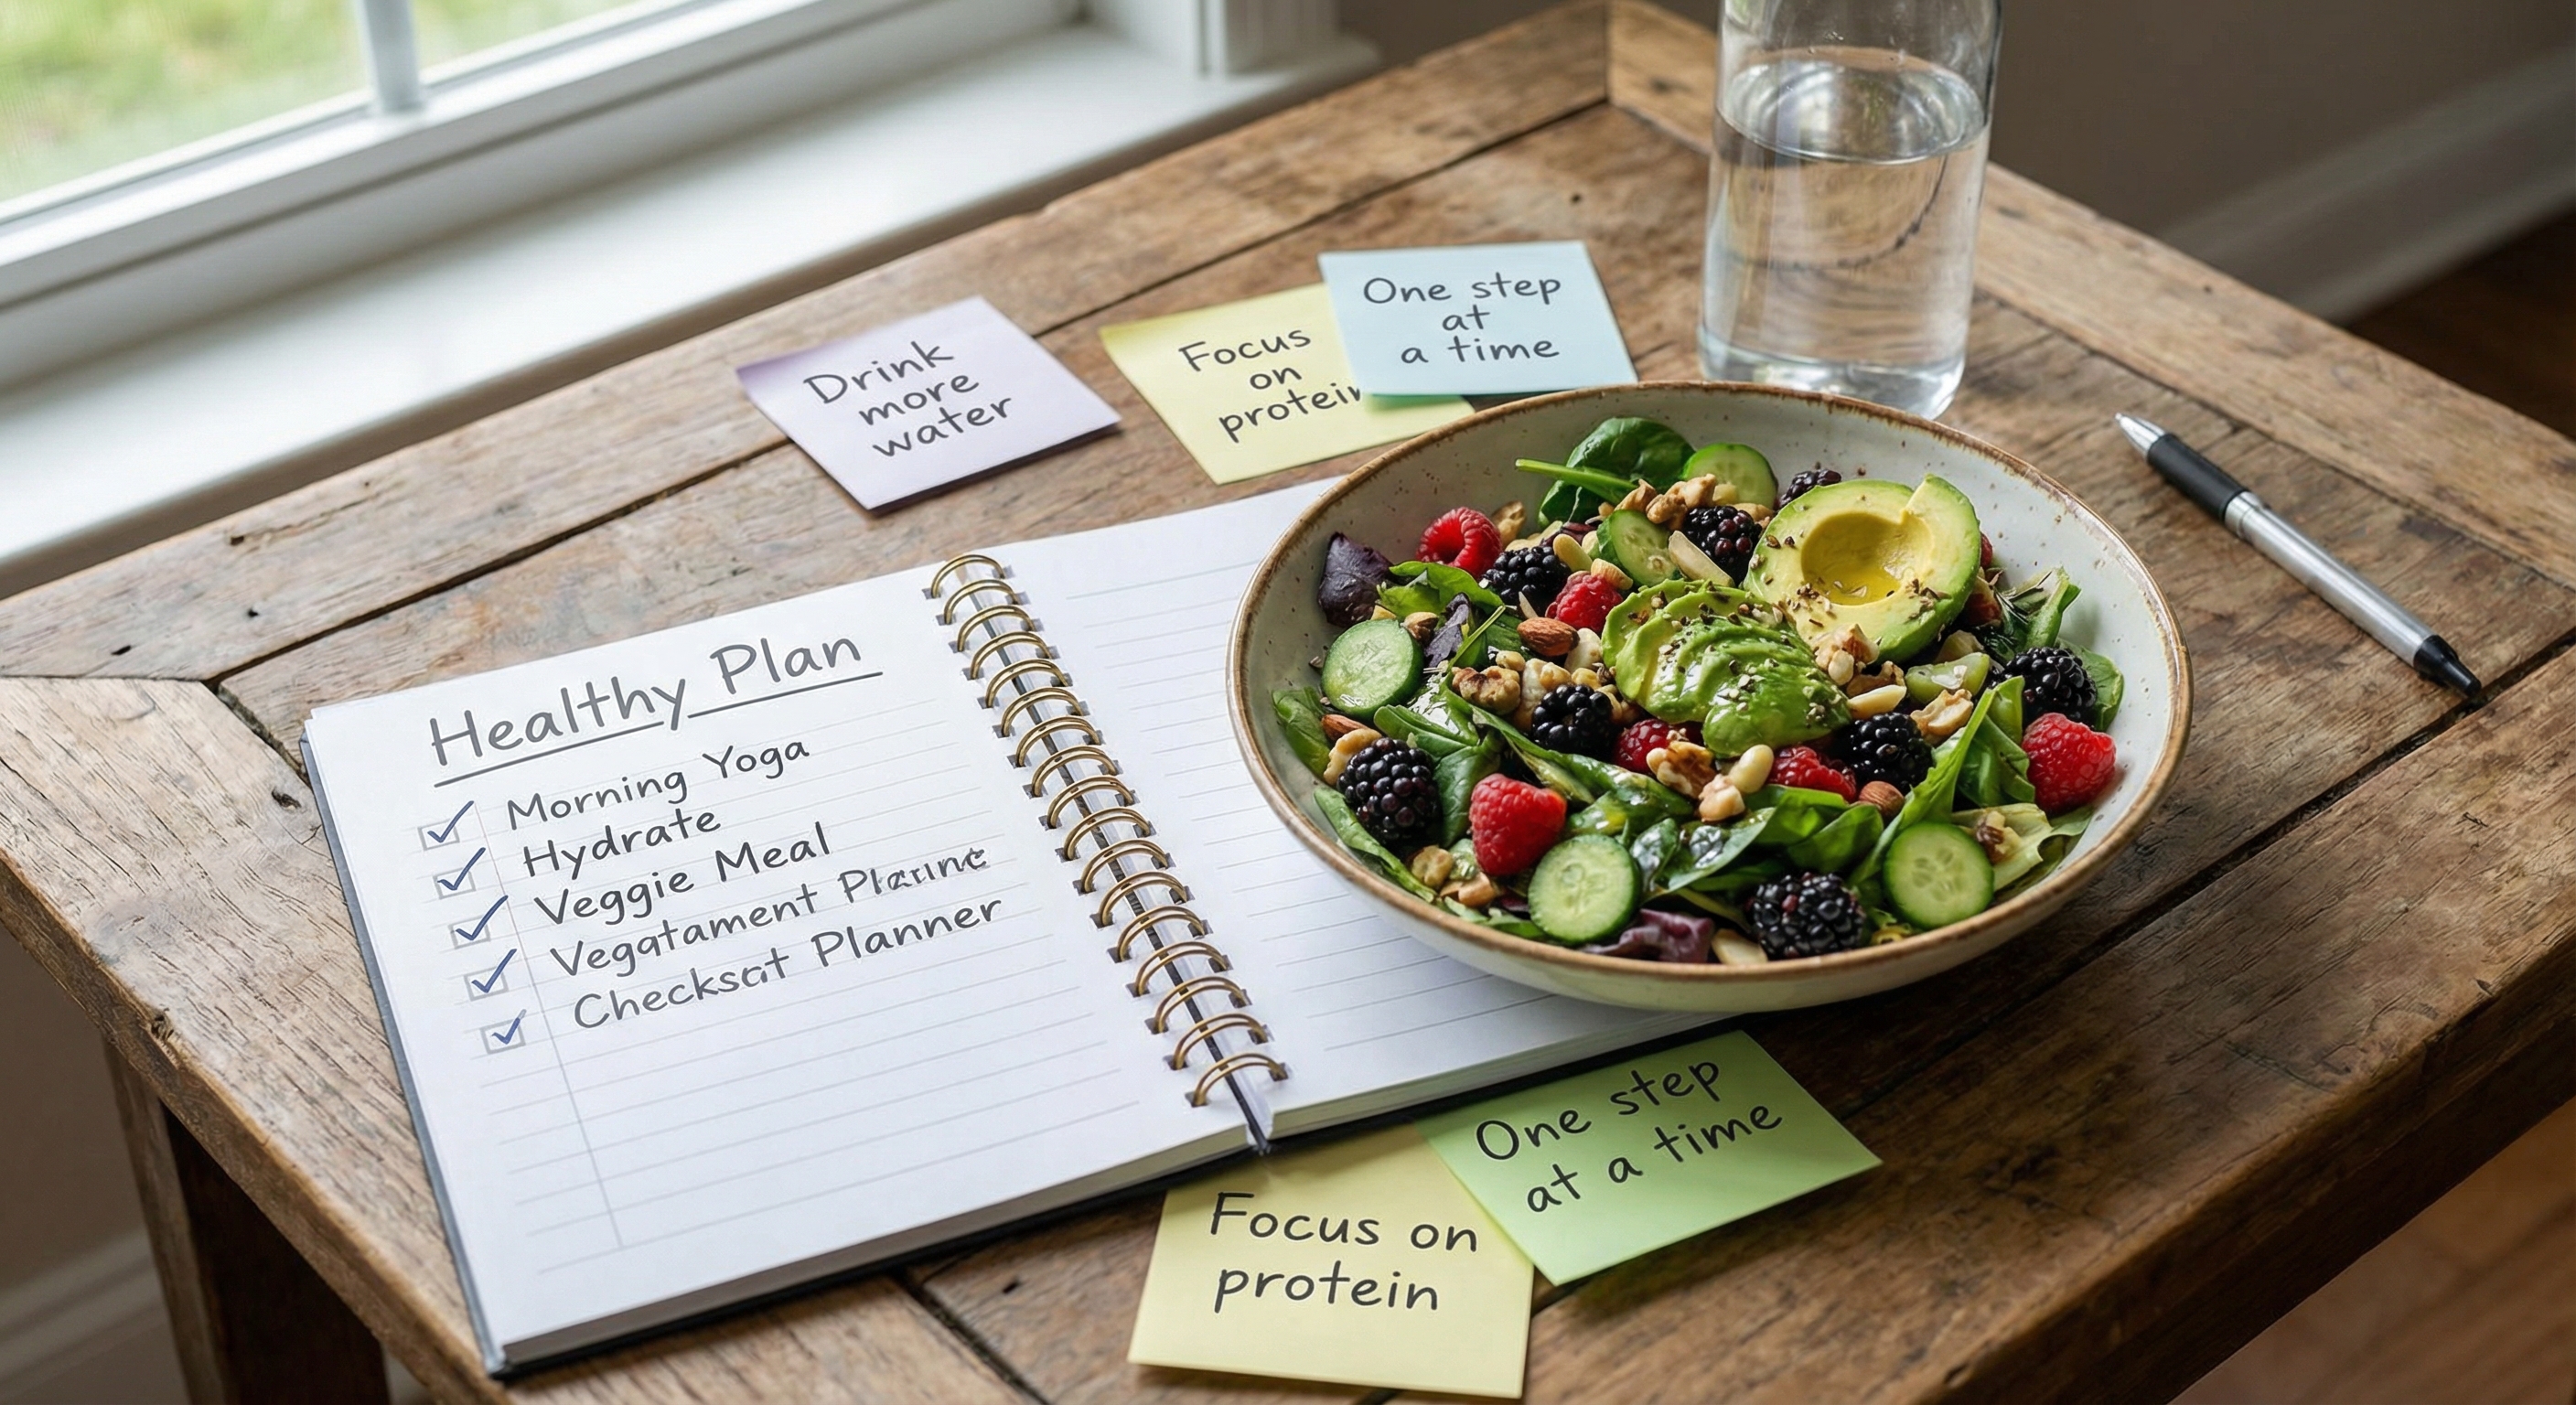 Drink
more
water
Focus
on
protein
One step
at
a time
Healthy Plan
Morning Yoga
Hydrate
Veggie Meal
Vegatament
Checkscit Planner
One step
at a time
Focus on
protein